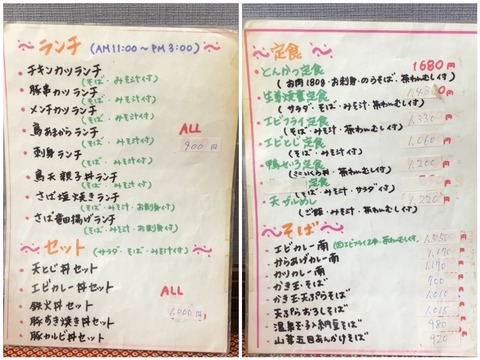 ランチ (AM 11:00 ～ PM 3:00)
・チキンカツランチ
(そば・みそ汁付)
・豚串カツランチ
・メンチカツランチ
(そば・みそ汁付)
ALL
900円
・刺身ランチ
(そば・みそ汁付)
・鳥天親子丼ランチ
(そば・みそ汁付)
・さば塩焼きランチ
(そば・みそ汁・お刺身付)
・さば竜田揚げランチ
(そば・みそ汁・お刺身付)
セット (サラダ・そば・みそ汁付)
・天とじ丼セット
・エビカレー丼セット
・鉄火丼セット
・豚カルビ丼セット
ALL
1,000円
定食
・とんかつ定食 1680円
(お肉180g・お刺身・のうそば・茶わんむし付)
・生姜焼定食
(サラダ・そば・みそ汁・茶わんむし付)
・エビフライ定食 1,330円
(そば・みそ汁・茶わんむし付)
・エビとじ定食 1,060円
(そば・みそ汁・茶わんむし付)
・鴨せいろ定食 1,200円
定食
(そば・みそ汁・サラダ付)
・天ヅルめし 1,220円
(ご飯・みそ汁・茶わんむし付)
そば
・エビカレー南
・からあげカレー南 1,170
・カツカレー南 1,170
・かき玉・そば 900
・かき玉天ぷらそば 1,010
・天ぷらおろしそば 1,015
・温泉玉子納豆そば 980
・山菜五目あんかけそば 920